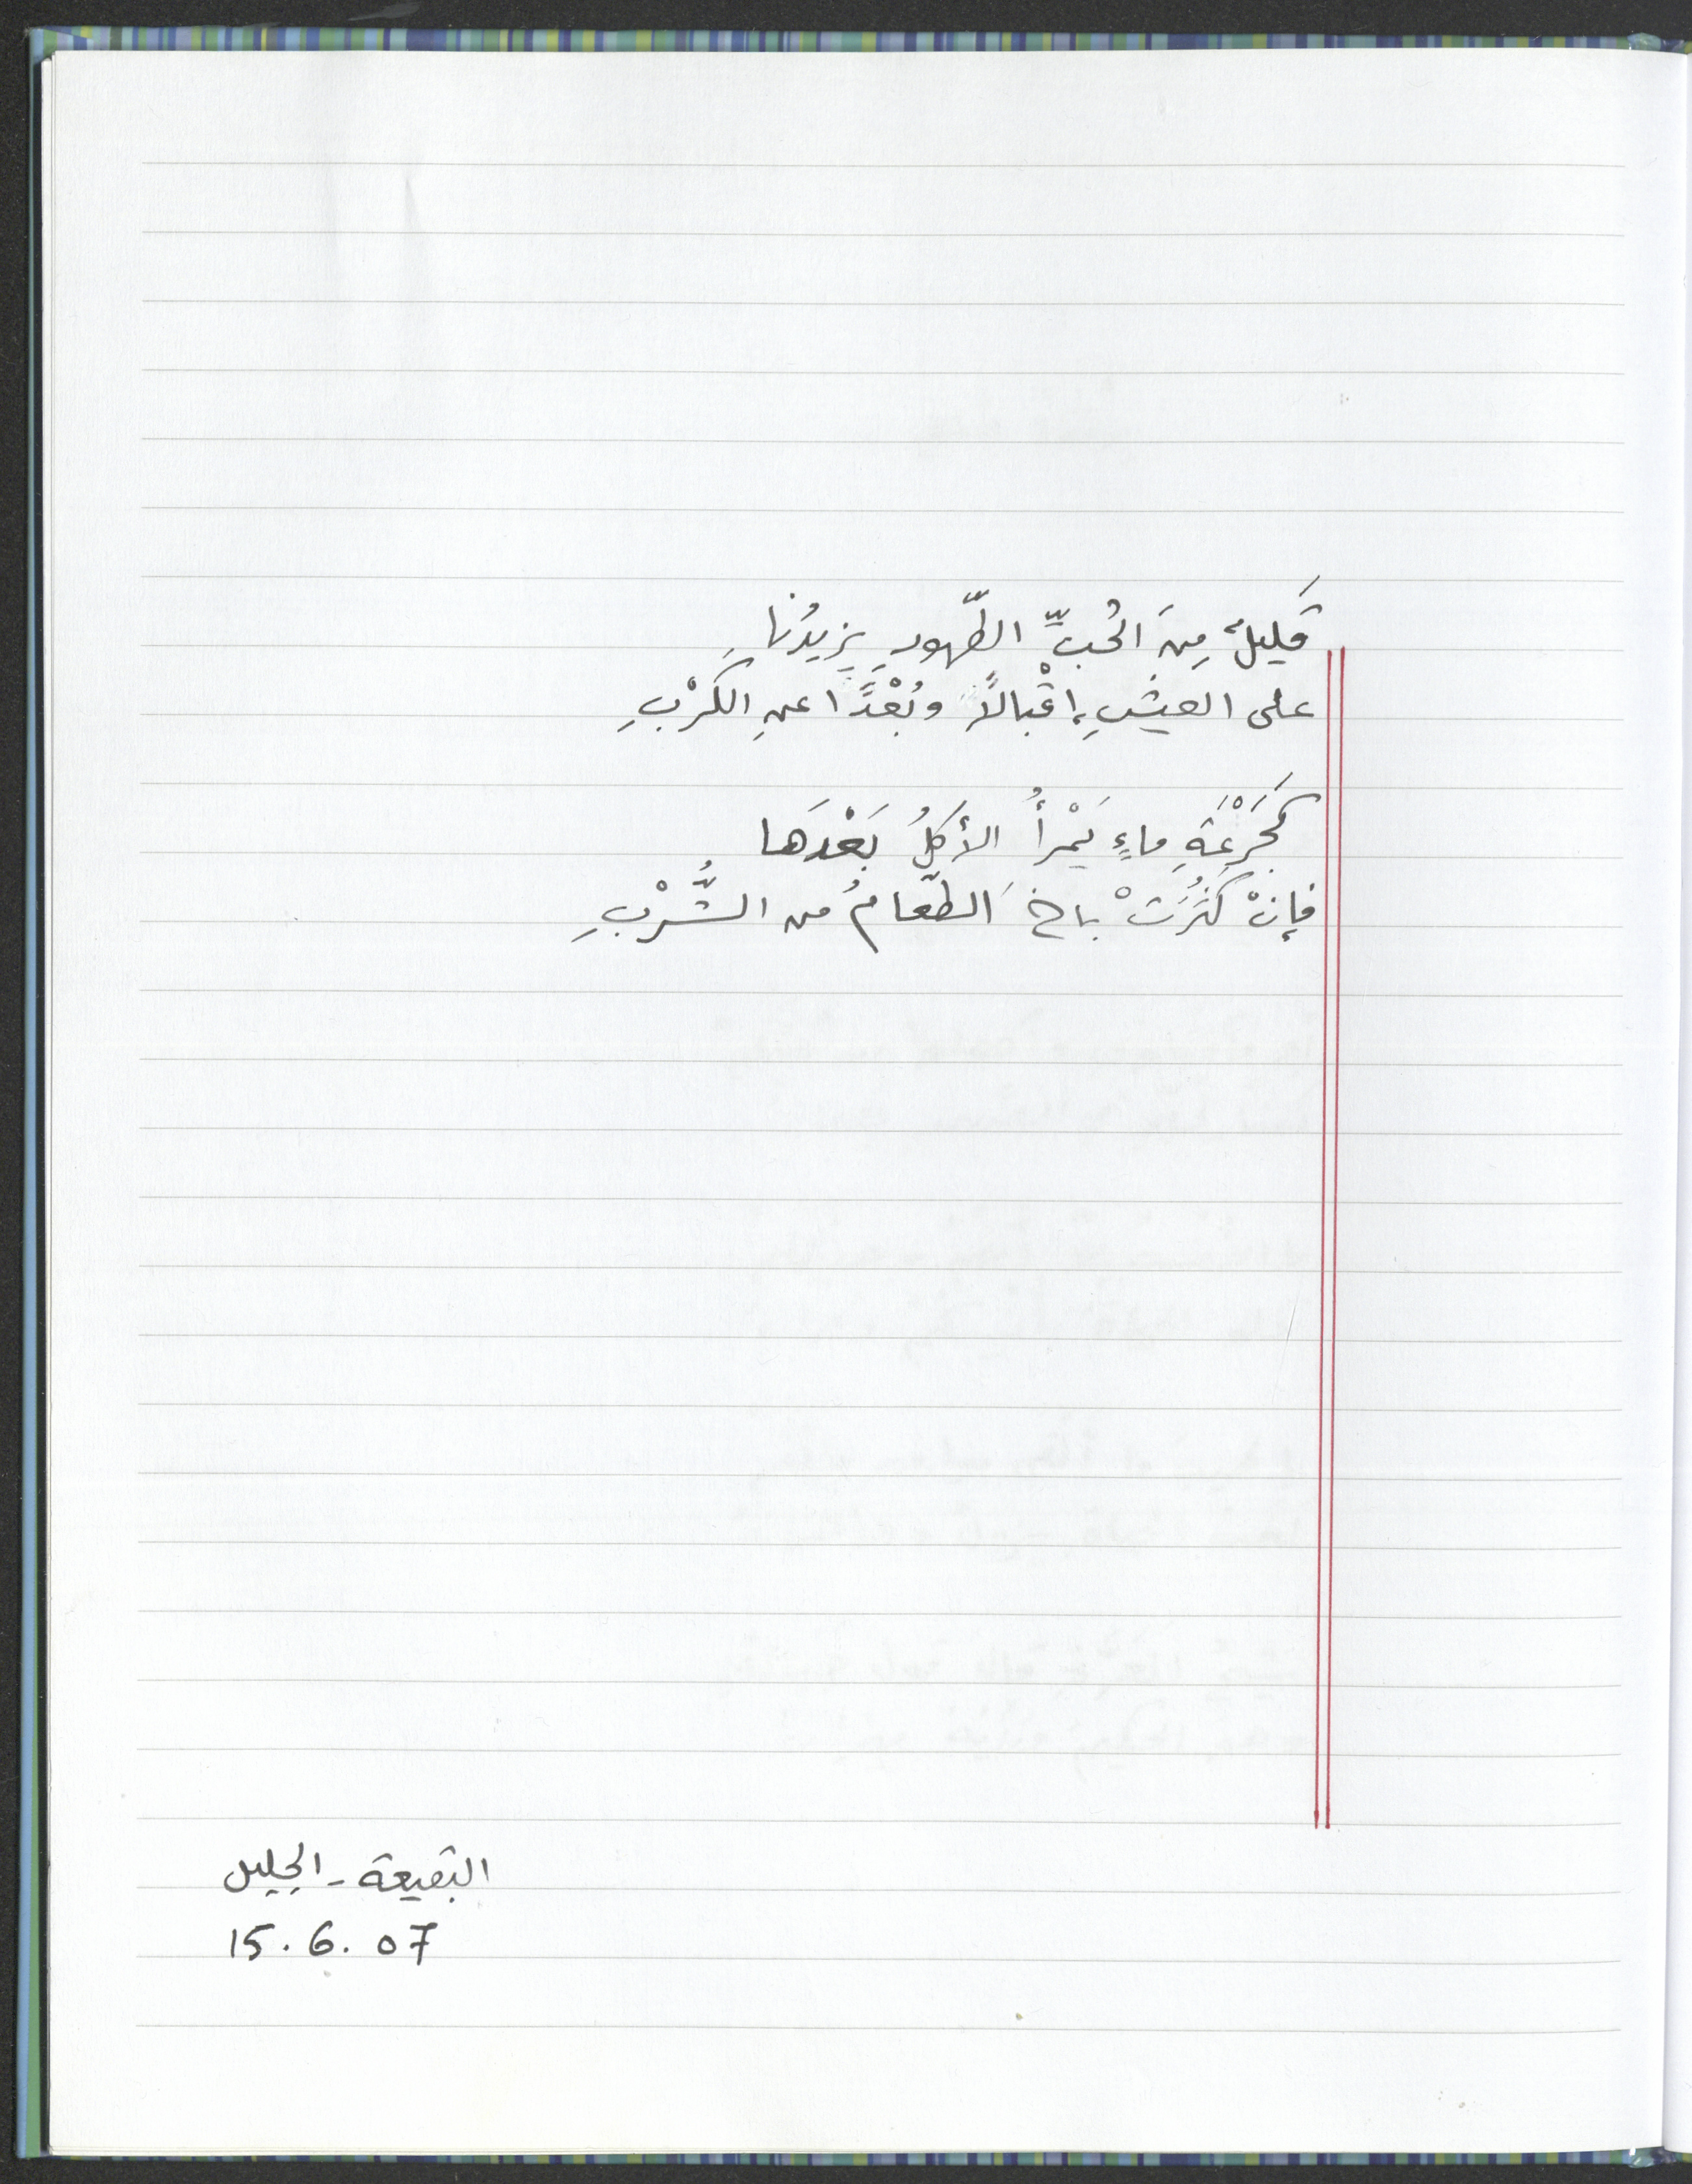 قَليلٌ مِنَ الحُبِّ الطَّهورِ يزيدُنا
على العيشِ إقْبالاً وبُعْدًا عنِ الكَرْبِ
كَجَرْعَةِ ماءٍ يَمْرأُ الأكلُ بَعْدَها
فإنْ كَثُرَتْ باخَ الطّعامُ من الشُّرْبِ
البقيعة - الجليل
15.6.07